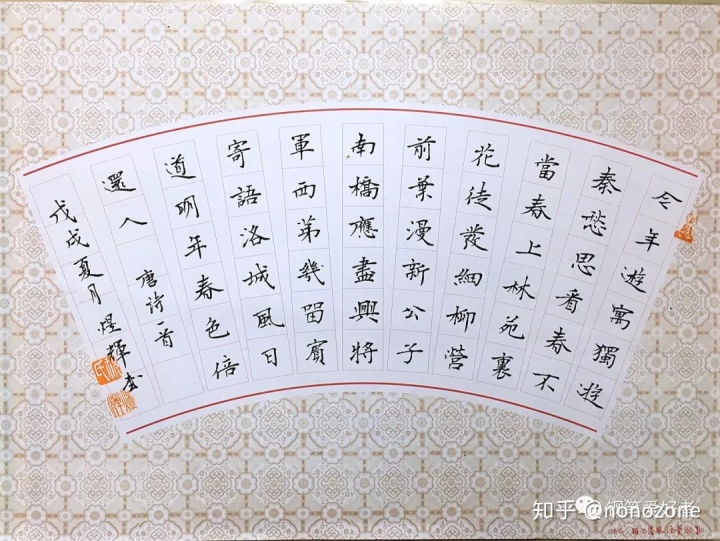 今年遊寓獨遊
秦愁思看春不
當春上林苑裏
花徒發細柳營
前葉漫新公子
南橋應盡興將
軍西第幾留賓
寄語洛城風日
道明年春色倍
還人 唐诗一首
戊戌夏月煜輝书
钢笔爱好者
知乎 @nonozone